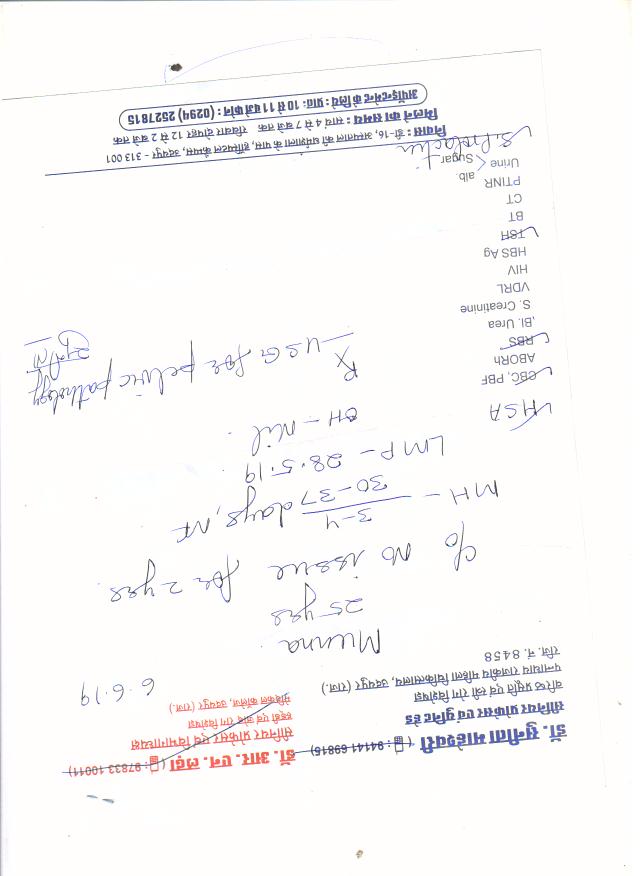 डॉ. सुनीता माहेश्वरी ( : 94141 69815)
सीनियर प्रोफेसर एवं यूनिट हेड
वरिष्ठ प्रसूति एवं स्त्री रोग विशेषज्ञ
पन्नाधाय राजकीय महिला चिकित्सालय, उदयपुर (राज.)
रजि. नं. 8458
डॉ. आर. एन. लढ्ढा ( : 97833 10011)
सीनियर प्रोफेसर एवं विभागाध्यक्ष
हड्डी एवं जोड़ रोग विशेषज्ञ
मेडिकल कॉलेज, उदयपुर (राज.)
6.6.19
Munna
25 yrs
c/o No issue for 2 yrs
MH - 3-4
30-37 days, NF
LMP - 28.5.19
OH - Nil
Rx
USG for pelvic pathology
HSA
CBC, PBF
ABORh
RBS
Bl. Urea
S. Creatinine
VDRL
HIV
HBS Ag
TSH
BT
CT
PTINR
Urine < alb.
Sugar
S. Prolactin
निवास : डी-16, अस्पताल की धर्मशाला के पास, हॉस्पिटल कैम्पस, उदयपुर - 313 001
मिलने का समय : सायं 4 से 7 बजे तक रविवार दोपहर 12 से 2 बजे तक
अपॉइन्टमेन्ट के लिये : प्रातः 10 से 11 बजे फोन : (0294) 2527815